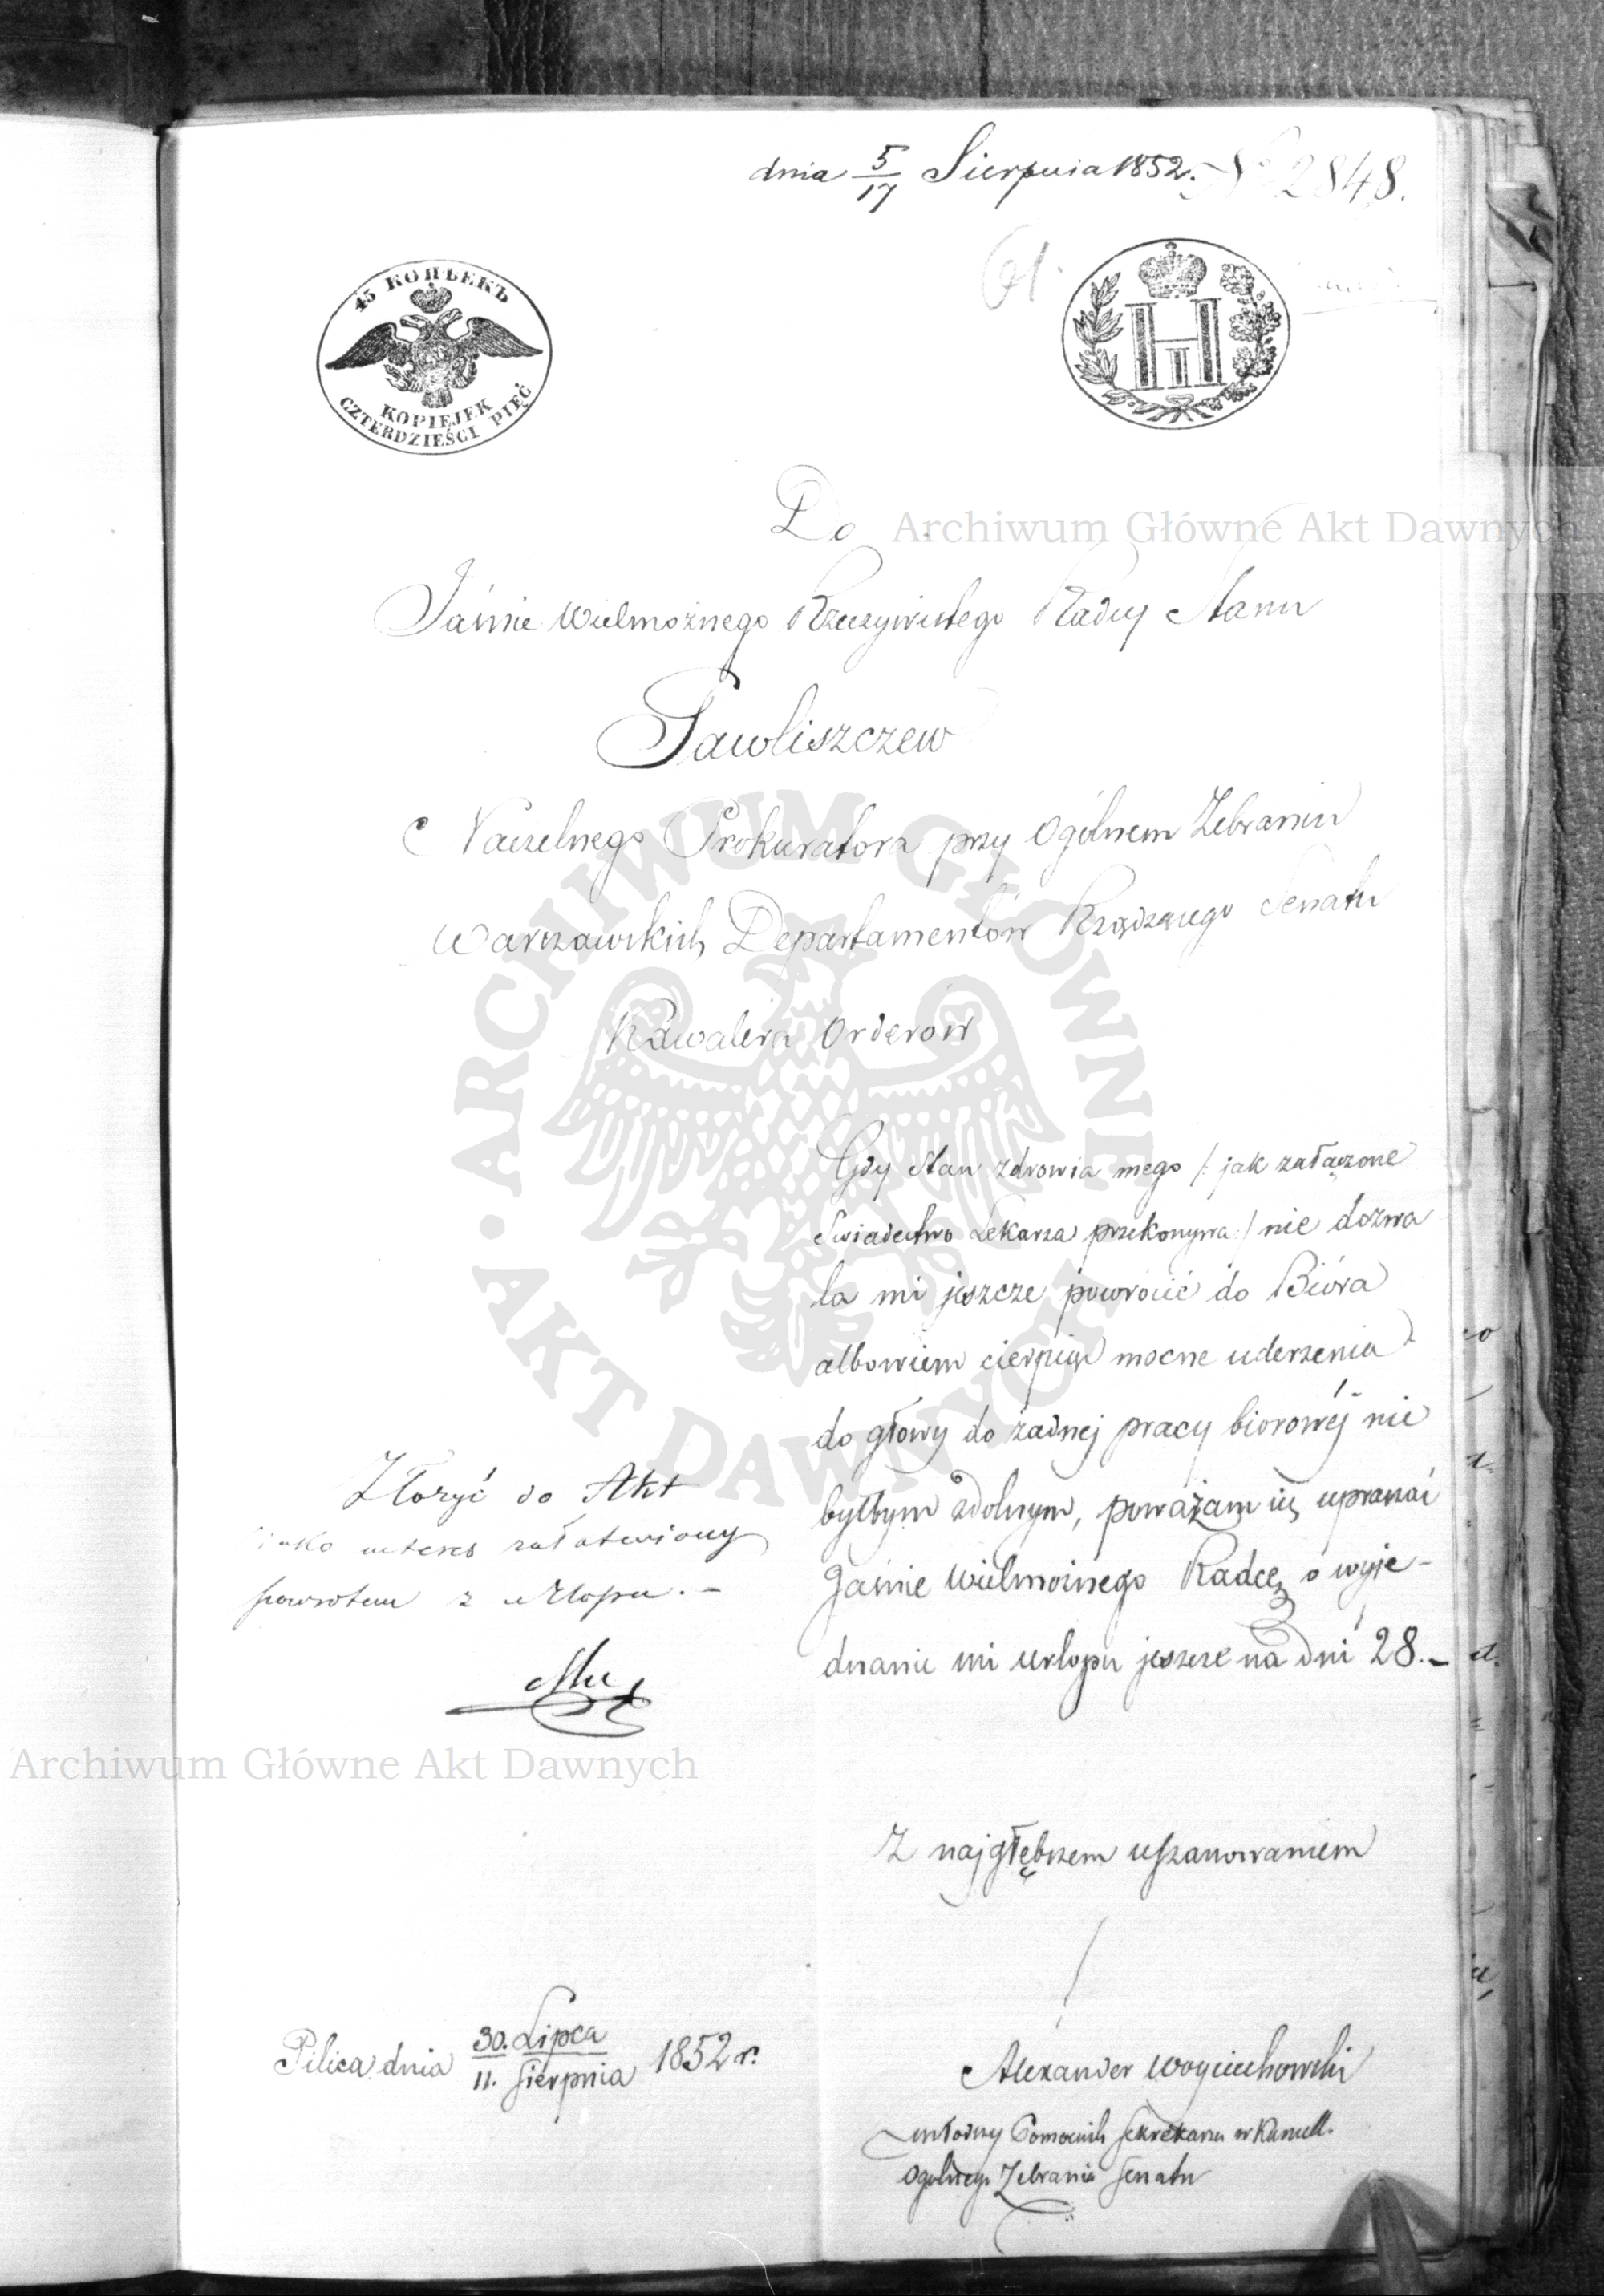 dnia 5/17 Sierpnia 1852. No 2848.
61.
45 КОПѢЕКЪ
KOPIEJEK
CZTERDZIEŚCI PIĘĆ
Н I
Do
Archiwum Główne Akt Dawnych
Jaśnie Wielmożnego Rzeczywistego Radcy Stanu
Pawliszczew
Naczelnego Prokuratora przy Ogólnem Zebraniu
Warszawskich Departamentów Rządzącego Senatu
Kawalera Orderów
ARCHIWUM GŁÓWNE • AKT DAWNYCH •
Gdy stan zdrowia mego /: jak załączone
Swiadectwo Lekarza przekonywa :/ nie dozwa
la mi jeszcze powrócić do Bióra
albowiem cierpiąc mocne uderzenia
do głowy do żadnej pracy biorowéj nie
byłbym zdolnym, poważam się upraszać
Jaśnie Wielmożnego Radcę o wyje-
dnanie mi urlopu jeszcze na dni 28.–
Złożyć do Akt
jako interes załatwiony
powrotem z urlopu. –
Archiwum Główne Akt Dawnych
Z najgłębszem uszanowaniem
Pilica dnia 30. Lipca / 11. Sierpnia 1852 r.
Alexander Woyciechowski
młodszy Pomocnik Sekretarza w Kancell.
Ogolnego Zebrania Senatu